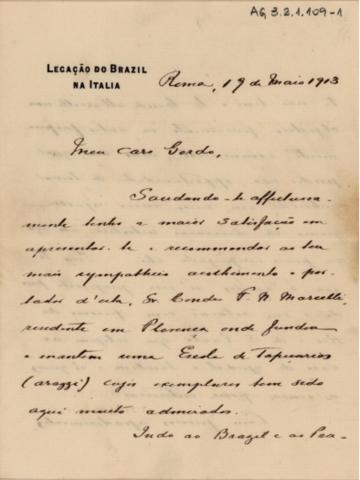 AG, 3.2.1.109-1
LEGAÇÃO DO BRAZIL
NA ITALIA
Roma, 19 de Maio 1913
Meu caro Gordo,
Saudando-te affectuosa-
mente tenho a maior satisfação em
apresentar-te e recommendar ao teu
mais sympathico acolhimento o por-
tador d'esta, Sr. Conde F. N. Marcelli,
residente em Florença onde fundou
e mantem uma Escola de Tapeçarias
(arazzi) cujos exemplares tem sido
aqui muito admirados.
Indo ao Brazil e ao Pra-